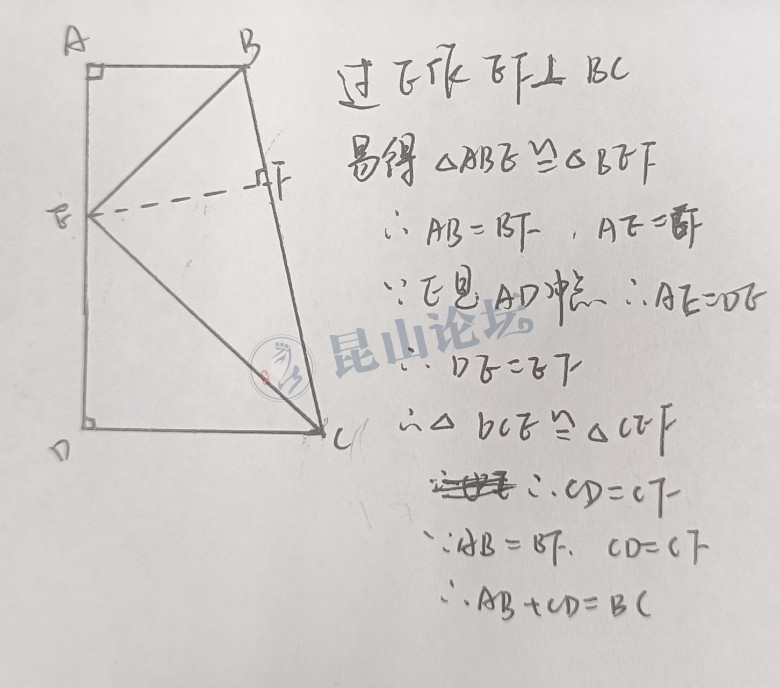 A
B
过E作 EF⊥BC
易得 △ABE≌△BEF
F
E
∴ AB=BF , AE=EF
∵E是AD中点 ∴AE=DE
昆山论坛
∴ DE=EF
∴△DCE≌△CEF
D
C
∴CD=CF
∵AB=BF. CD=CF
∴AB+CD=BC